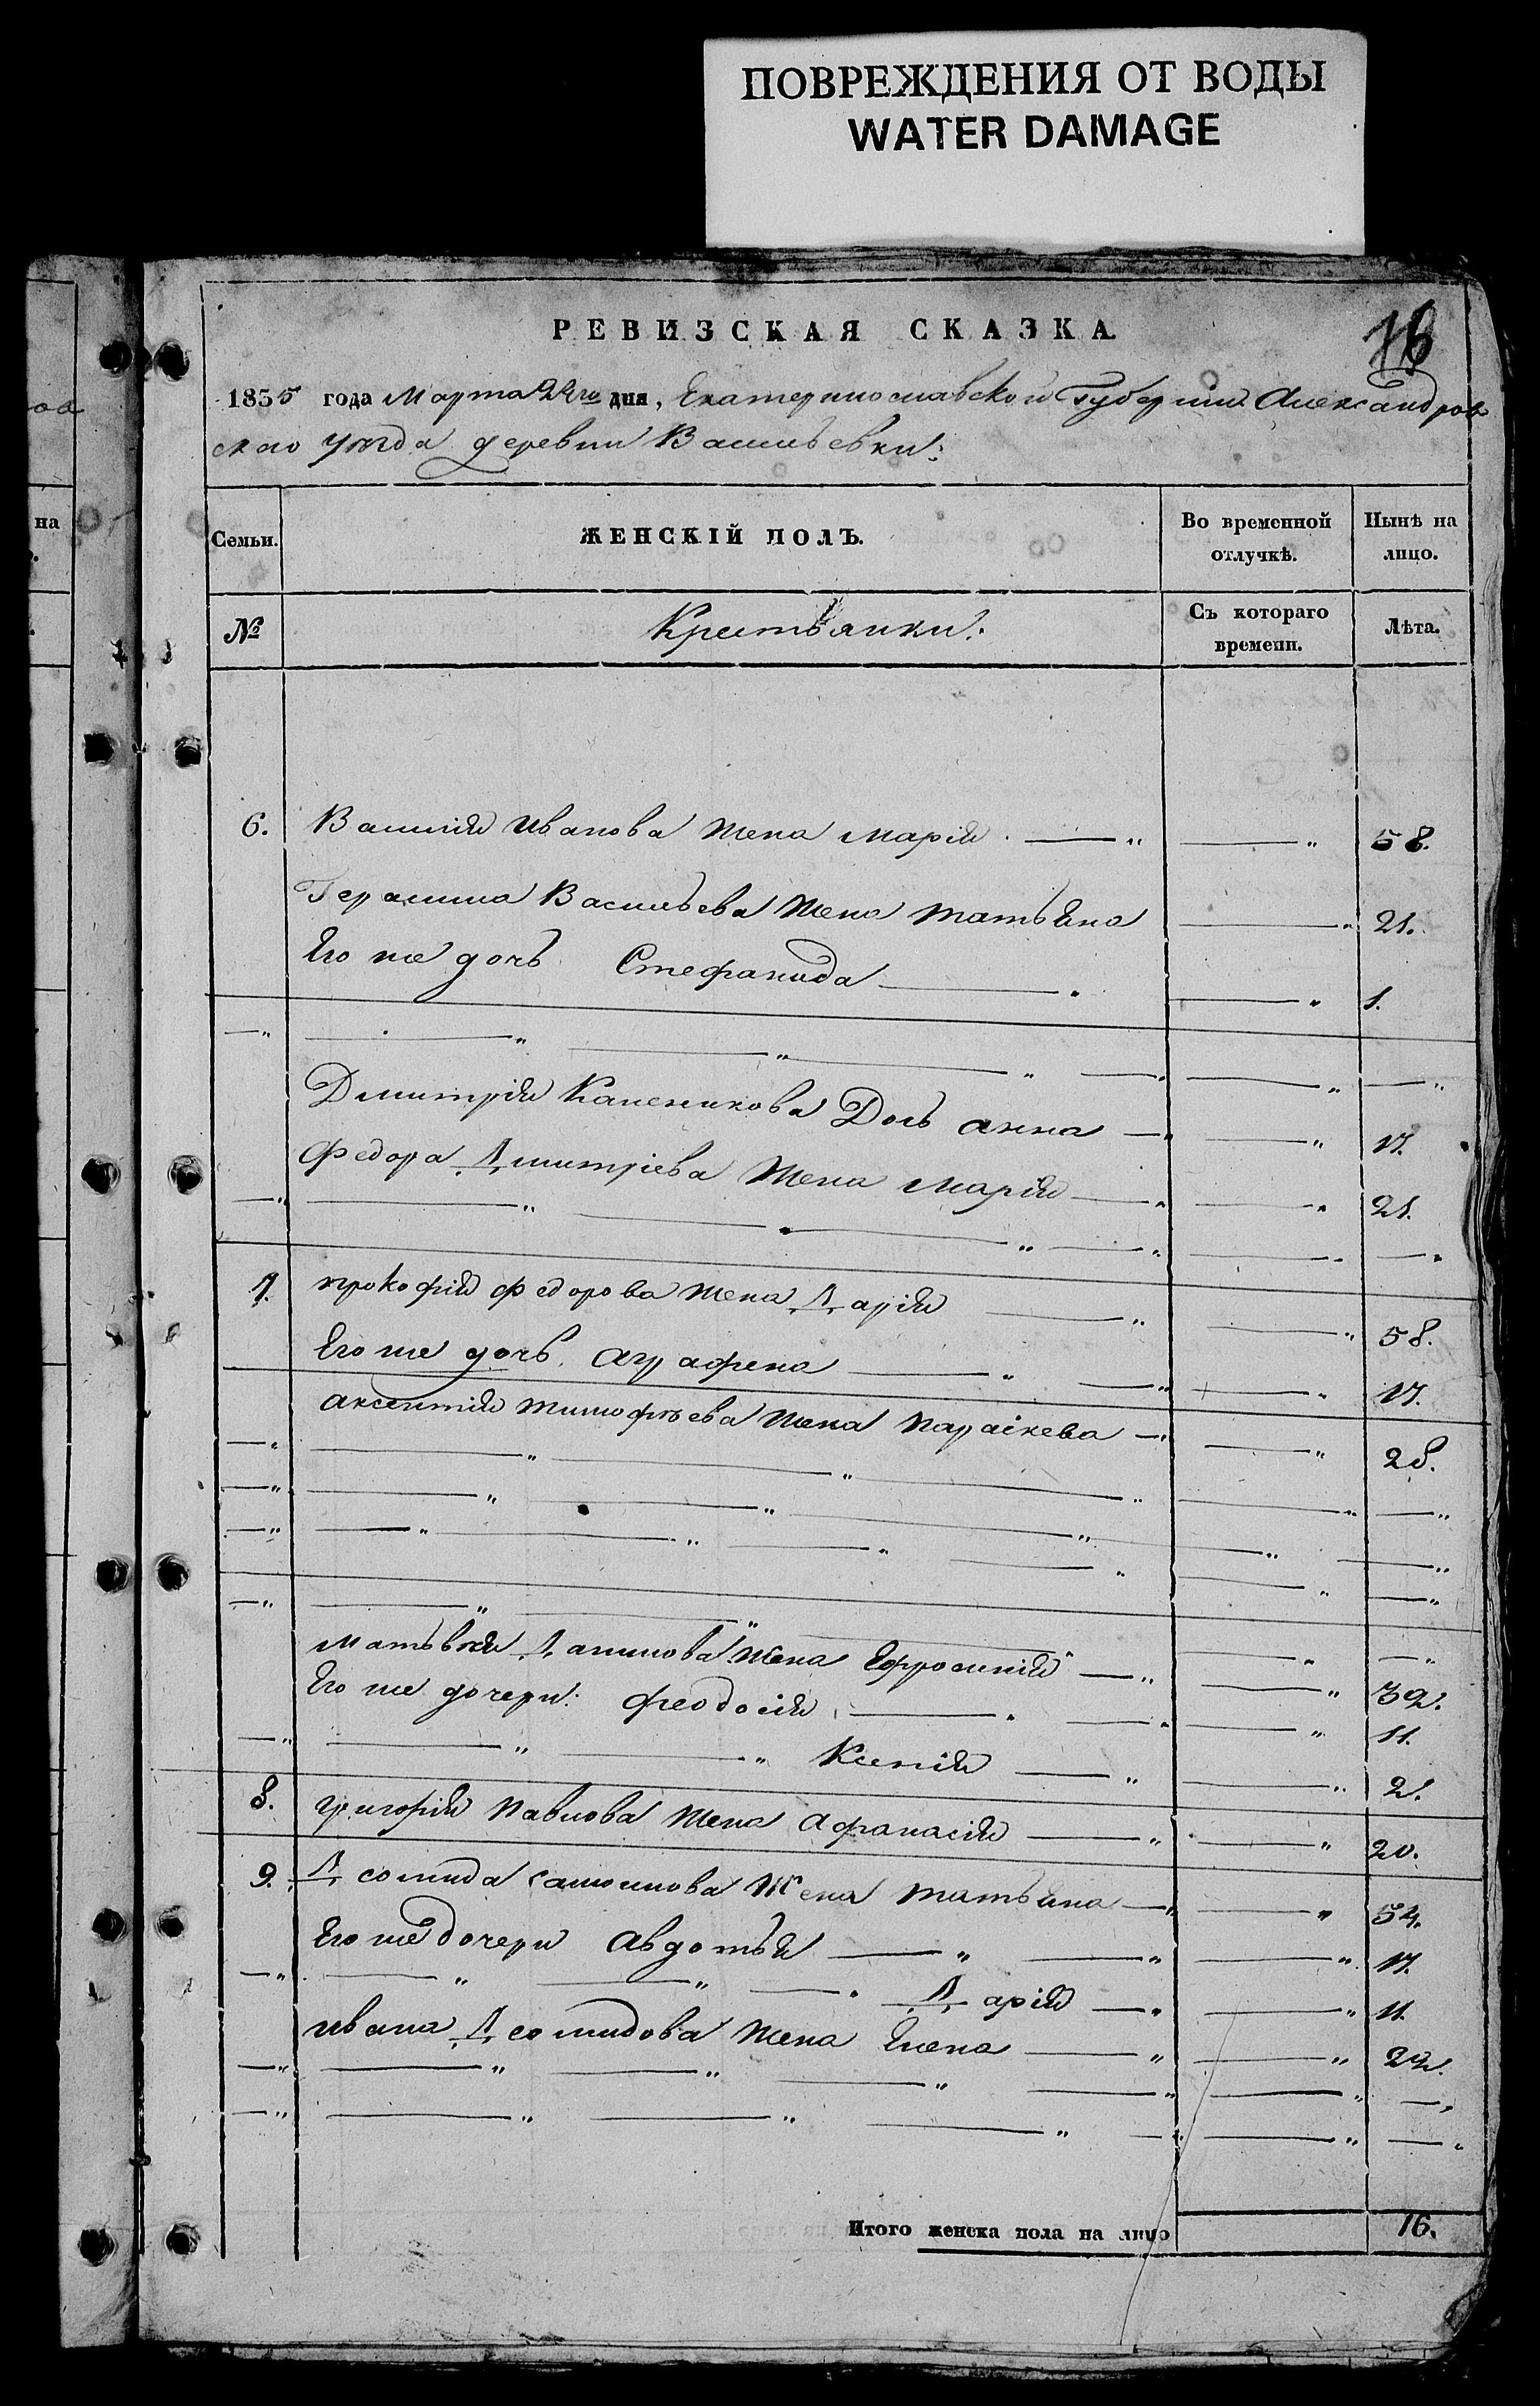 ПОВРЕЖДЕНИЯ ОТ ВОДЫ
WATER DAMAGE
РЕВИЗСКАЯ СКАЗКА
16
1835 года Марта 22го дня, Екатеринославской Губернии Александров
скаго уѣзда деревни Васильевки:
на
Семьи.
ЖЕНСКІЙ ПОЛЪ.
Во временной отлучкѣ.
Нынѣ на лицо.
№
Крестьянки.
Съ котораго времени.
Лѣта.
6. Василия Иванова жена Марія 58.
Герасима Васильева жена Татьяна 21.
Его же дочь Стефанида 1.
Дмитрія Дочь Анна 17.
Федора Дмитріева жена Марія 21.
7. Прокофія Федорова жена Дарія 58.
Его же дочь Аграфена 17.
Аксентія Тимофѣева жена Параскева 28.
Матьвѣя жена Ефросинія 32.
Его же дочери: Феодосія 11.
Ксенія 2.
8. Григорія Павлова жена Афанасія 20.
9. Дсомида жена Татьяна 54.
Его же дочери Авдотья 17.
Дарія 11.
Ивана Дсомидова жена Елена 22.
Итого женска пола на лицо 16.